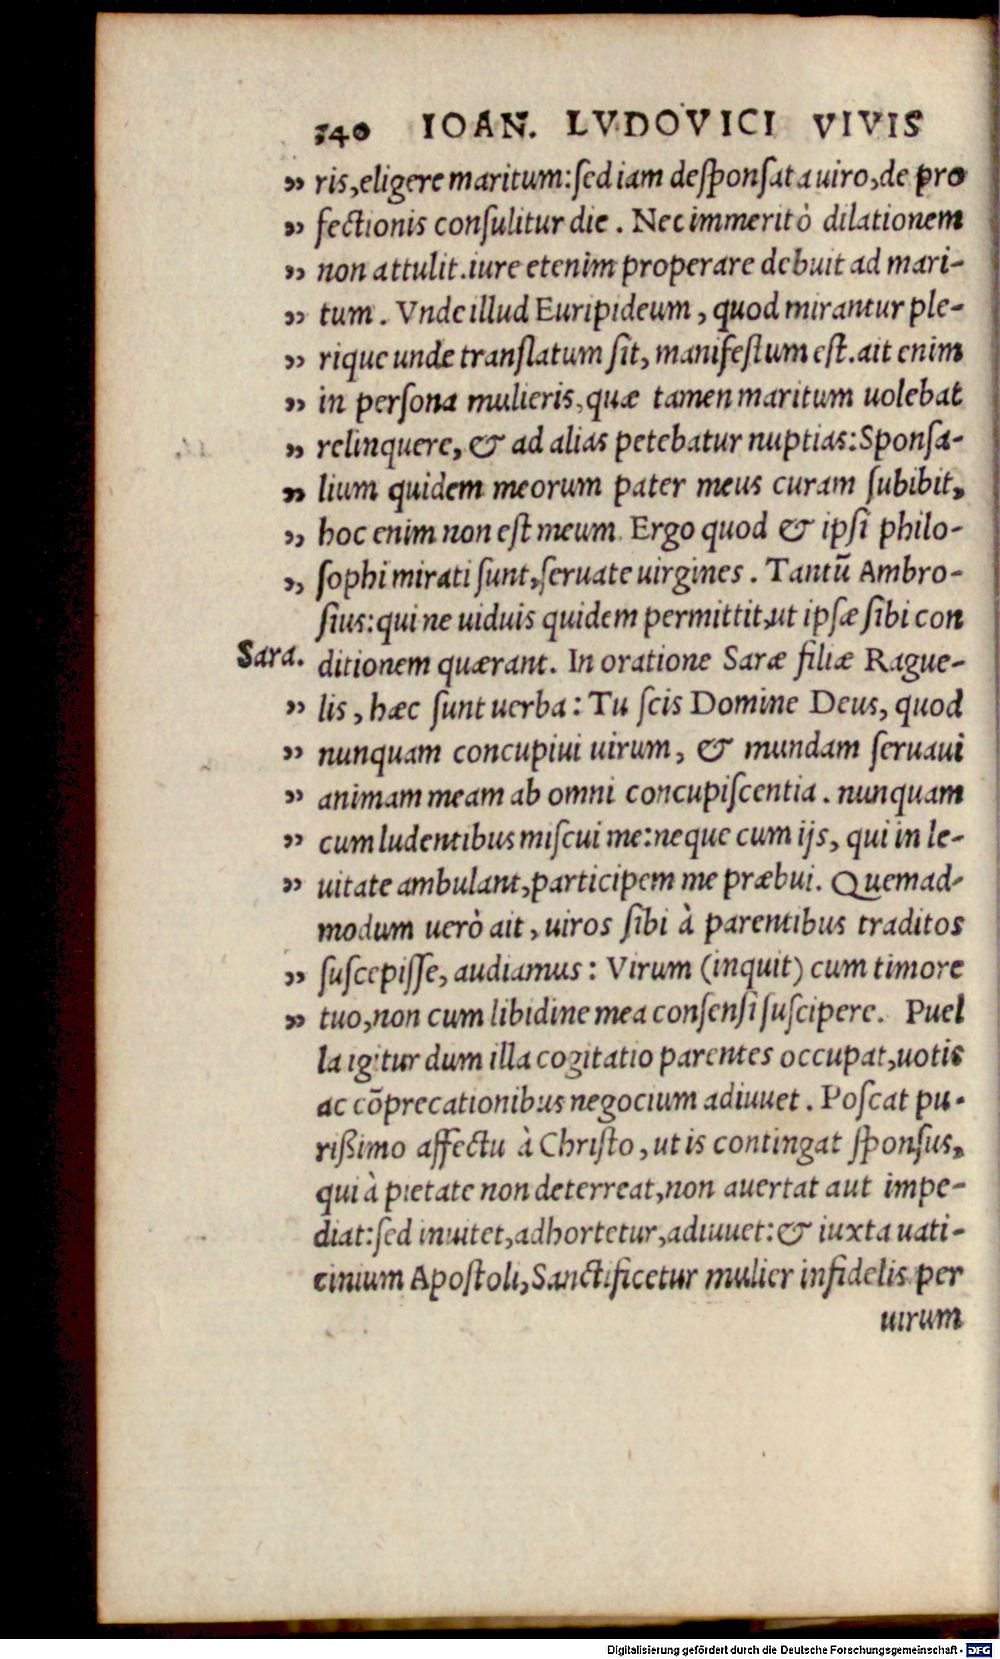 140 IOAN. LVDOVICI VIVIS
„ ris, eligere maritum: sed iam desponsata uiro, de pro
„ fectionis consulitur die. Nec immeritò dilationem
„ non attulit. iure etenim properare debuit ad mari-
„ tum. Vnde illud Euripideum, quod mirantur ple-
„ rique unde translatum sit, manifestum est. ait enim
„ in persona mulieris, quæ tamen maritum uolebat
„ relinquere, & ad alias petebatur nuptias: Sponsa-
„ lium quidem meorum pater meus curam subibit,
„ hoc enim non est meum. Ergo quod & ipsi philo-
„ sophi mirati sunt, seruate uirgines. Tantũ Ambro-
sius: qui ne uiduis quidem permittit, ut ipsæ sibi con
Sara. ditionem quærant. In oratione Saræ filiæ Rague-
„ lis, hæc sunt uerba: Tu scis Domine Deus, quod
„ nunquam concupiui uirum, & mundam seruaui
„ animam meam ab omni concupiscentia. nunquam
„ cum ludentibus miscui me: neque cum ijs, qui in le-
„ uitate ambulant, participem me præbui. Quemad-
modum uerò ait, uiros sibi à parentibus traditos
„ suscepisse, audiamus: Virum (inquit) cum timore
„ tuo, non cum libidine mea consensi suscipere. Puel
la igitur dum illa cogitatio parentes occupat, uotis
ac cõprecationibus negocium adiuuet. Poscat pu-
rißimo affectu à Christo, ut is contingat sponsus,
qui à pietate non deterreat, non auertat aut impe-
diat: sed inuitet, adhortetur, adiuuet: & iuxta uati-
cinium Apostoli, Sanctificetur mulier infidelis per
uirum
Digitalisierung gefördert durch die Deutsche Forschungsgemeinschaft - DFG